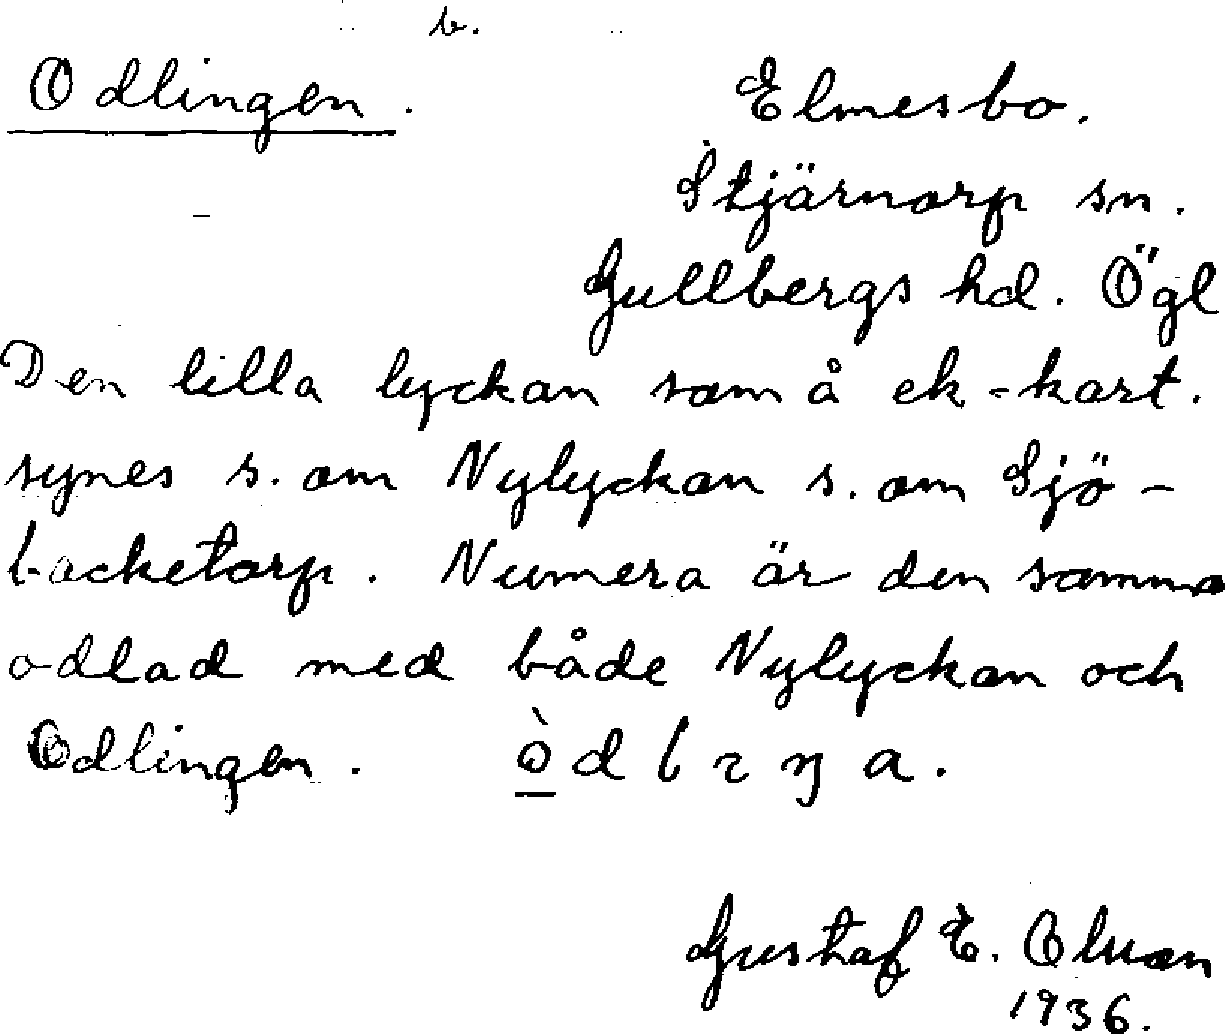 b.
Odlingen.
Elmesbo.
Stjärnorp sn.
Gullbergs hd. Ögl
Den lilla lyckan som å ek-kart.
synes s. om Nylyckan s. om Sjö-
backetorp. Numera är den samma
odlad med både Nylyckan och
Odlingen.
Gustaf E.
1936.